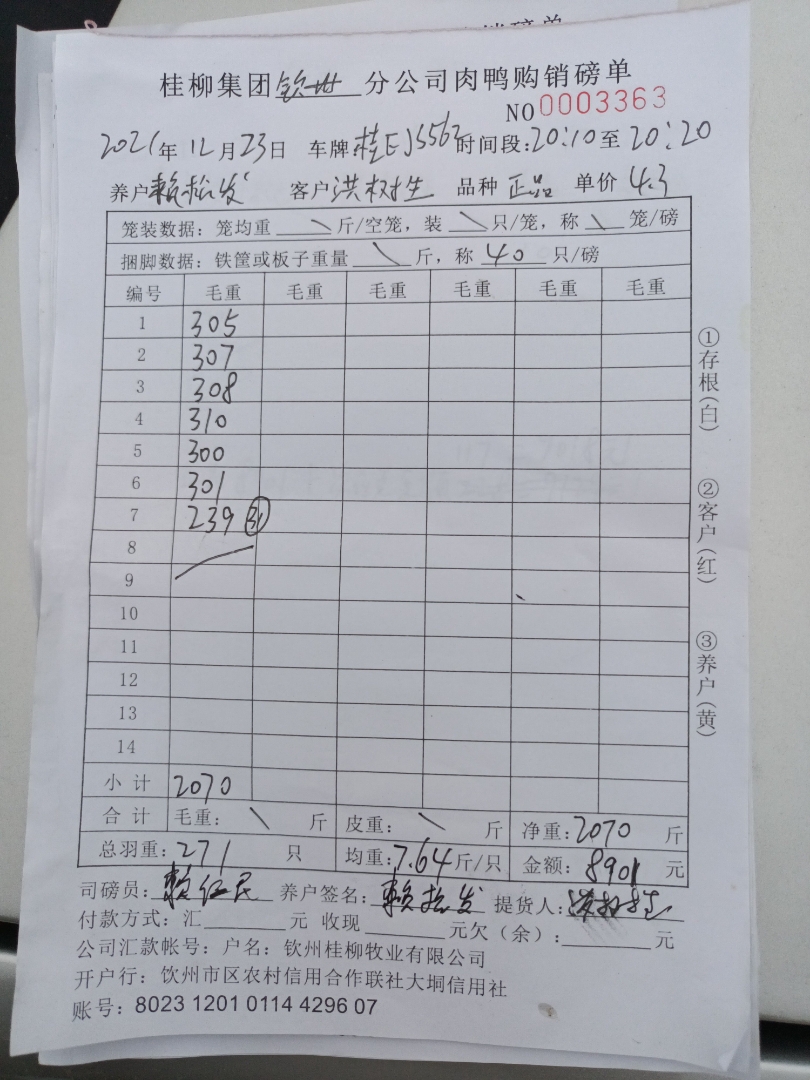 桂柳集团钦州分公司肉鸭购销磅单
NO 0003363
2021年12月23日 车牌桂EJ5562时间段:20:10至20:20
养户赖松发 客户洪权生 品种 正品 单价 4.3
笼装数据：笼均重 \ 斤/空笼，装 \ 只/笼，称 \ 笼/磅
捆脚数据：铁筐或板子重量 \ 斤，称 40 只/磅
编号 毛重 毛重 毛重 毛重 毛重 毛重
1 305
2 307
3 308
4 310
5 300
6 301
7 239 31
8
9
10
11
12
13
14
小 计 2070
合 计 毛重： \ 斤 皮重： \ 斤 净重：2070 斤
总羽重：271 只 均重：7.64斤/只 金额：8901 元
司磅员：赖红民 养户签名：赖松发 提货人：
付款方式：汇 元 收现 元欠（余）： 元
公司汇款帐号：户名：钦州桂柳牧业有限公司
开户行：饮州市区农村信用合作联社大垌信用社
账号：8023 1201 0114 4296 07
①存根(白)
②客户(红)
③养户(黄)